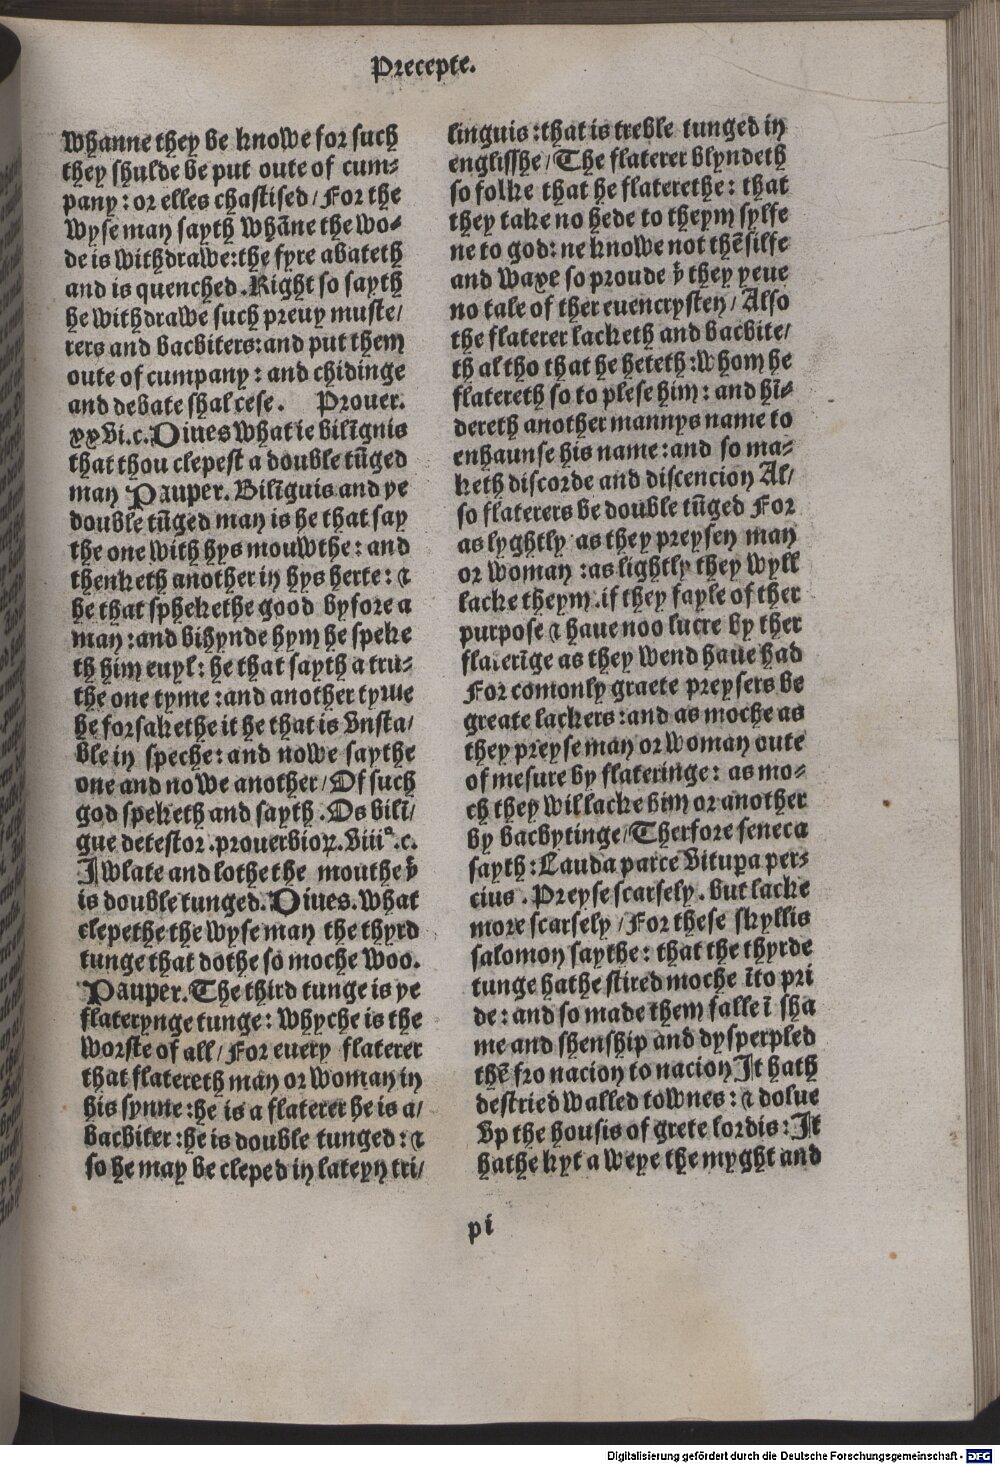 Precepte.
whanne they be knowe for such
they shulde be put oute of cum-
pany: or elles chastised/ For the
wyse man sayth whāne the wo-
de is withdrawe: the fyre abateth
and is quenched. Right so sayth
he withdrawe such preuy muste/
rers and bacbiters: and put them
oute of cumpany: and chidinge
and debate shal cese. Prouer.
xxvi. c. Diues what ie bilīgnis
that thou clepest a double tūged
man Pauper. Bilīguis and ye
double tūged man is he that say
the one with hys mouwthe: and
thenketh another in hys herte: ⁊
he that sphekethe good byfore a
man: and bihynde hym he speke
th him euyl: he that sayth a tru-
the one tyme: and another tyme
he forsakethe it he that is vnsta/
ble in speche: and nowe saythe
one and nowe another/ Of such
god speketh and sayth. Os bilī/
gue detestor. prouerbioꝝ. viiiº. c.
I wlate and lothe the mouthe yͭ
is double tunged. Diues. what
clepethe the wyse man the thyrd
tunge that dothe so moche woo.
Pauper. The third tunge is ye
flaterynge tunge: whyche is the
worste of all/ For euery flaterer
that flatereth man or woman in
his synne: he is a flaterer he is a/
bacbiter: he is double tunged: ⁊
so he may be cleped in lateyn tri/
linguis: that is treble tunged in
englisshe/ The flaterer blyndeth
so folke that he flaterethe: that
they take no hede to theym sylfe
ne to god: ne knowe not thēsilfe
and waxe so proude yͭ they yeue
no tale of ther euencrysten/ Also
the flaterer lacketh and bacbite/
th al tho that he heteth: whom he
flatereth so to plese him: and hī-
dereth another mannys name to
enhaunse his name: and so ma-
keth discorde and discencion Al/
so flaterers be double tūged For
as lyghtly as they preysen man
or woman: as lightly they wyll
lacke theym. if they fayle of ther
purpose ⁊ haue noo lucre by ther
flaterīge as they wend haue had
For comonly graete preysers be
greate lackers: and as moche as
they preyse man or woman oute
of mesure by flateringe: as mo-
ch they wil lacke him or another
by bacbytinge/ Therfore seneca
sayth: Lauda parce vitupꝑa per-
cius. Preyse scarsely. but lacke
more scarsely/ For these skyllis
salomon saythe: that the thyrde
tunge hathe stired moche īto pri
de: and so made them falle ī sha
me and shenship and dysperpled
thē fro nacion to nacion It hath
destried walled townes: ⁊ dolue
vp the housis of grete lordis: It
hathe kyt a weye the myght and
pi
Digitalisierung gefördert durch die Deutsche Forschungsgemeinschaft - DFG